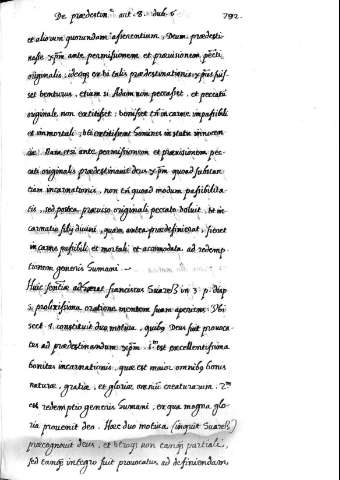 De prædestin.ne art. 8. dub. 6 792.
et aliorum quorundam asserentium, Deum prædesti
nasse xp̃m ante permissionem et prævisionem p̃cti
originalis, ideoq ex vi talis prædestinationis xp̃us fuis
set venturus, etiam si Adam non peccasset, et peccatũ
originale non extitisset; venisset tñ in carne impassibili
et immortali, ubi extitissent homines in statu innocen
tiæ. Nam etsi ante permissionem et prævisionem pec-
cati originalis prædestinavit deus xp̃m quoad substan
tiam incarnationis, non tñ quoad modum passibilita
tis, sed postea præviso originali peccato voluit, ut in-
carnatio filij divini, quam antea prædefinierat, fieret
in carne passibili et mortali et accomodata ad redemp
tionem generis humani.
Huic sentiæ adhæret franciscus Suares in 3. p. disp
5. prolixissima oratione mentem suam aperiens. Ubi
sect. 4. constituit duo motiva, quibq Deus fuit provoca
tus ad prædestinandum xp̃m. 1.m est excellentissima
bonitas incarnationis, quæ est maior omnibq bonis
naturæ, gratiæ, et gloriæ omniũ creaturarum. 2.m
est redemptio generis humani, ex qua magna glo-
ria provenit deo. Hæc duo motiva (inquit Suares)
præcognovit deus, et utroq non tanq̃ partiali,
sed tanq̃ integro fuit provocatus ad definiendum